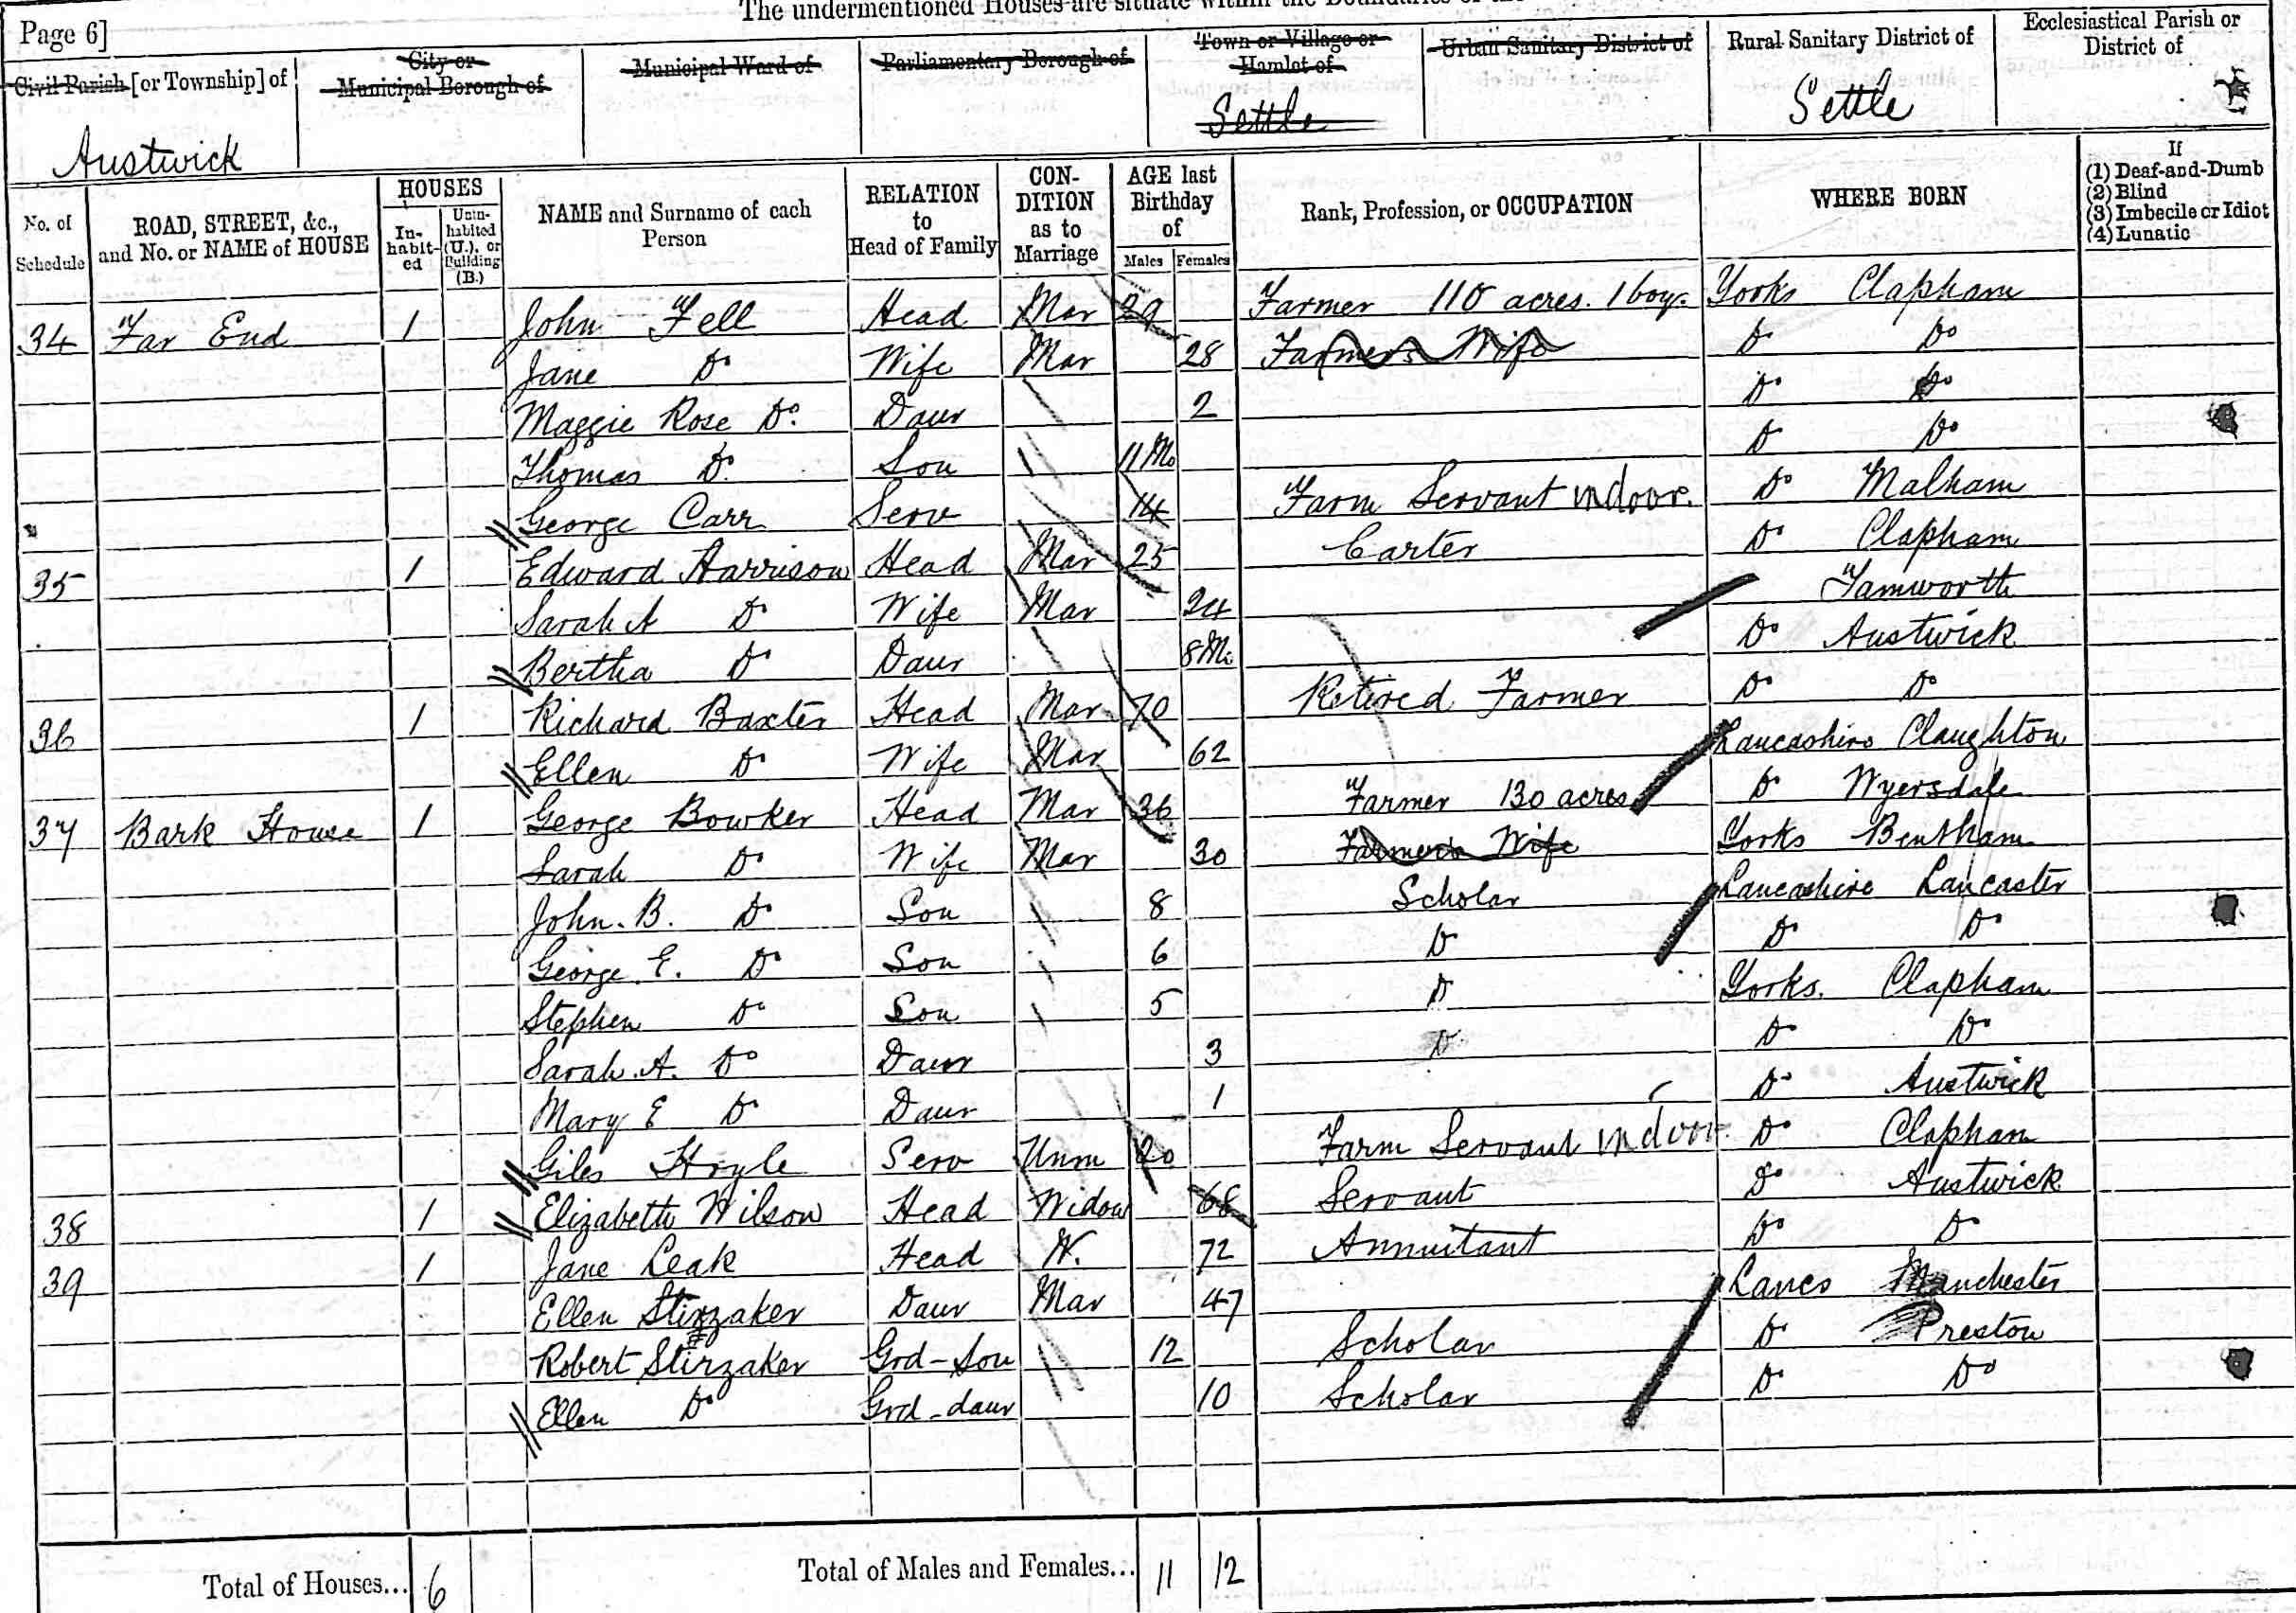 The undermentioned Houses are situate within the Boundaries of the
Page 6]
Civil Parish [or Township] of
City or Municipal Borough of
Municipal Ward of
Parliamentary Borough of
Town or Village or Hamlet of
Urban Sanitary District of
Rural Sanitary District of
Ecclesiastical Parish or District of
Austwick Settle Settle
No. of Schedule
ROAD, STREET, &c., and No. or NAME of HOUSE
HOUSES
In-habit-ed
Unin-habited (U.), or Building (B.)
NAME and Surname of each Person
RELATION to Head of Family
CON-DITION as to Marriage
AGE last Birthday of
Males Females
Rank, Profession, or OCCUPATION
WHERE BORN
If
(1) Deaf-and-Dumb
(2) Blind
(3) Imbecile or Idiot
(4) Lunatic
34 Far End 1 John Fell Head Mar 29 Farmer 110 acres. 1 boy. Yorks Clapham
Jane Do Wife Mar 28 Farmers Wife Do Do
Maggie Rose Do. Daur 2 Do Do
Thomas Do. Son 11 Mo Do Do
George Carr Serv 14 Farm Servant indoor. Do Malham
35 1 Edward Harrison Head Mar 25 Carter Do Clapham
Sarah A Do Wife Mar 24 Tamworth
Bertha Do Daur 8 Mo Do Austwick
36 1 Richard Baxter Head Mar 70 Retired Farmer Do Do
Ellen Do Wife Mar 62 Lancashire Claughton
37 Bark House 1 George Bowker Head Mar 36 Farmer 130 acres Do Wyersdale
Sarah Do Wife Mar 30 Farmers Wife Yorks Bentham
John. B. Do Son 8 Scholar Lancashire Lancaster
George E. Do Son 6 Do Do Do
Stephen Do Son 5 Do Yorks. Clapham
Sarah. A. Do Daur 3 Do Do Do
Mary E Do Daur 1 Do Austwick
Giles Hoyle Serv Unm 20 Farm Servant indoor. Do Clapham
38 1 Elizabeth Wilson Head Widow 68 Servant Do Austwick
39 1 Jane Leak Head W. 72 Annuitant Do Do
Ellen Stirzaker Daur Mar 47 Lancs Manchester
Robert Stirzaker Grd-Son 12 Scholar Do Preston
Ellen Do Grd-daur 10 Scholar Do Do
Total of Houses... 6 Total of Males and Females... 11 12